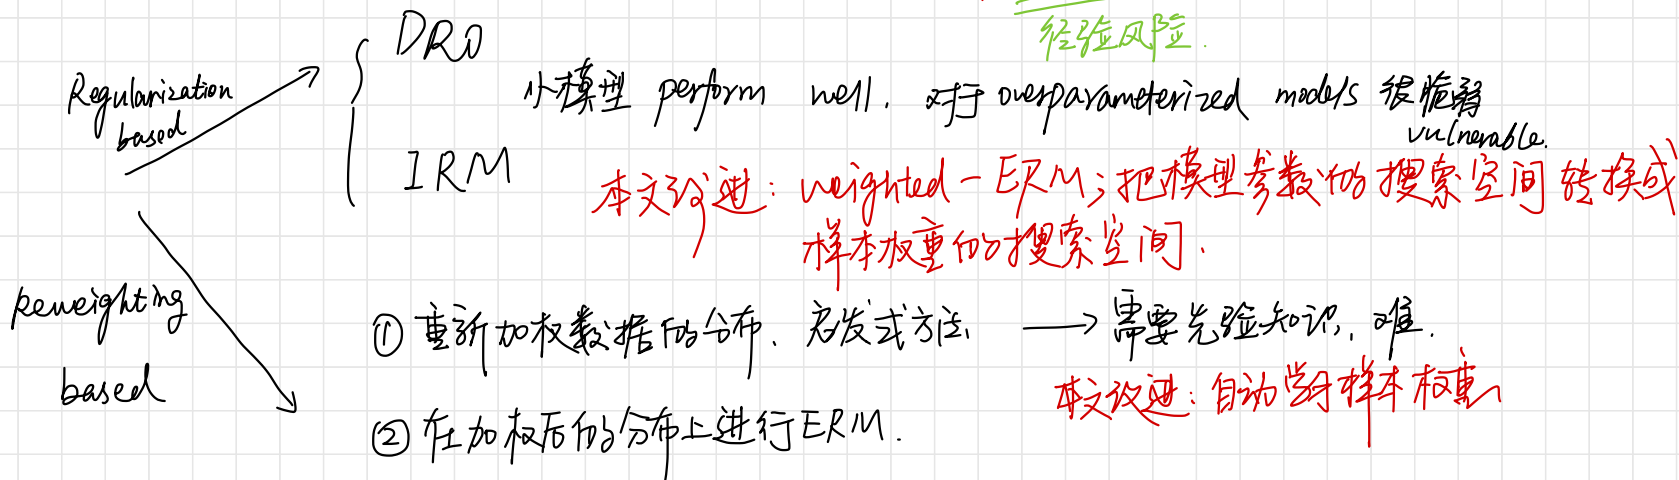 经验风险.
DRO
Regularization
based
小模型 perform well. 对于 overparameterized models 很脆弱
vulnerable.
IRM
本文改进: weighted-ERM; 把模型参数的搜索空间转换成
样本权重的搜索空间.
Reweighting
based
① 重新加权数据的分布. 启发式方法. → 需要先验知识, 难.
本文改进: 自动学习样本权重
② 在加权后的分布上进行ERM.